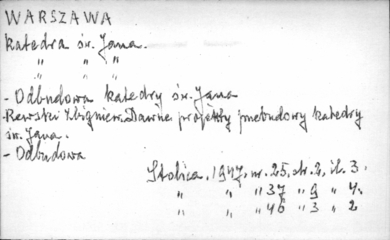 WARSZAWA
Katedra św. Jana.
" " "
" " "
- Odbudowa katedry św. Jana
- Rewski Zbigniew. Dawne projekty przebudowy katedry
św. Jana.
- Odbudowa
Stolica. 1947, nr. 25, str. 2, il. 3.
" " " 37 " 9 " 4.
" " " 46 " 3 " 2